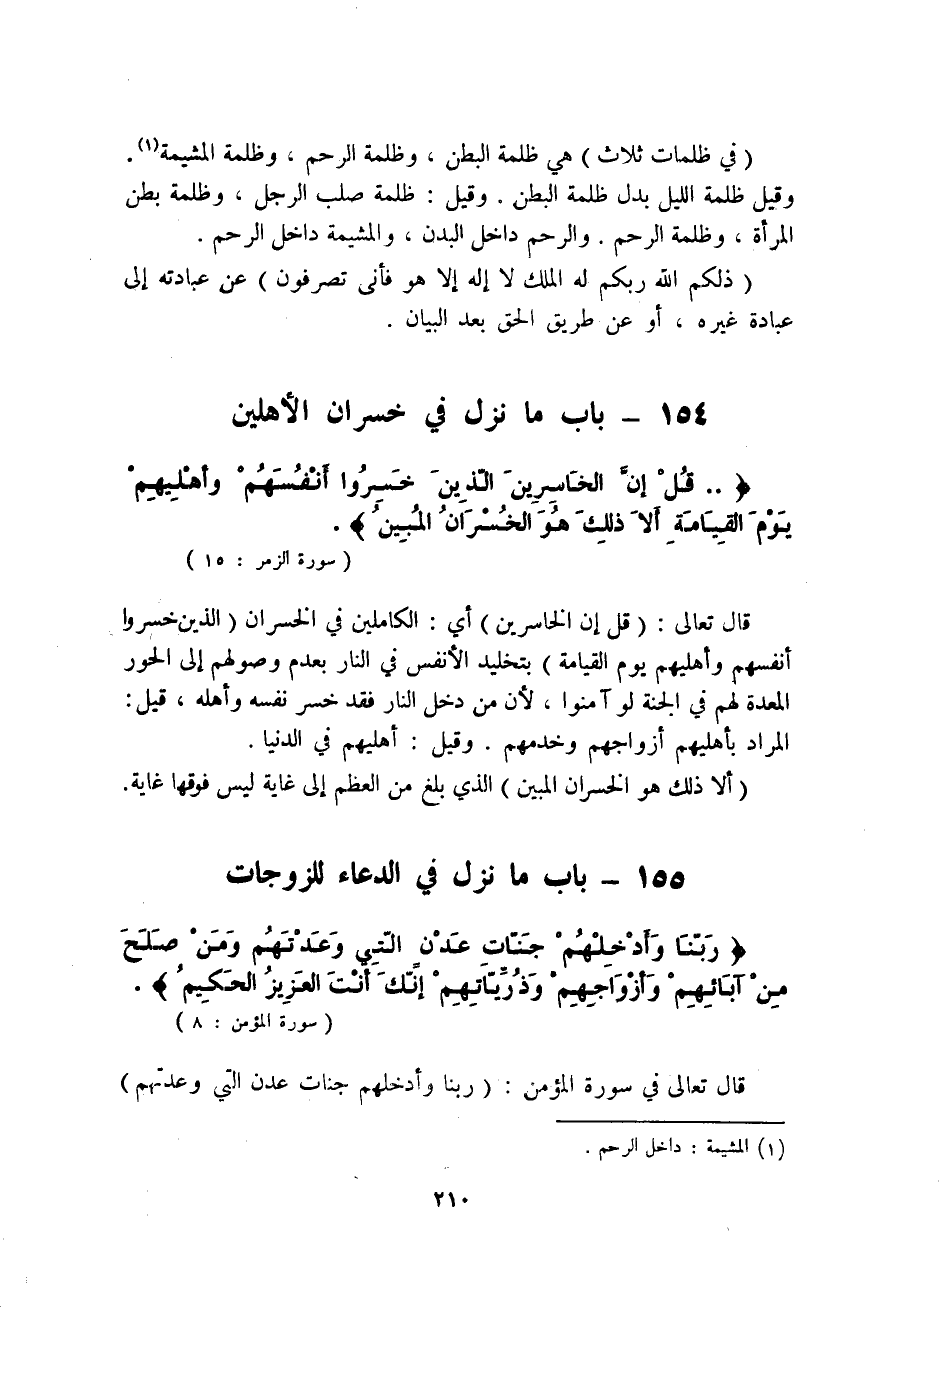 ( في ظلمات ثلاث ) هي ظلمة البطن ، وظلمة الرحم ، وظلمة المشيمة(١) .
وقيل ظلمة الليل بدل ظلمة البطن . وقيل : ظلمة صلب الرجل ، وظلمة بطن
المرأة ، وظلمة الرحم . والرحم داخل البدن ، والمشيمة داخل الرحم .
( ذلكم الله ربكم له الملك لا إله إلا هو فأنى تصرفون ) عن عبادته إلى
عبادة غيره ، أو عن طريق الحق بعد البيان .
١٥٤ – باب ما نزل في خسران الأهلين
﴿ .. قُلْ إنَّ الخَاسِرِينَ الّذِينَ خَسِرُوا أَنْفُسَهُمْ وأهْلِيهِمْ
يَوْمَ القِيَامَةِ أَلاَ ذلِكَ هُوَ الخُسْرَانُ المُبِينُ ﴾ .
( سورة الزمر : ١٥ )
قال تعالى : ( قل إن الخاسرين ) أي : الكاملين في الخسران ( الذين خسروا
أنفسهم وأهليهم يوم القيامة ) بتخليد الأنفس في النار بعدم وصولهم إلى الحور
المعدة لهم في الجنة لو آمنوا ، لأن من دخل النار فقد خسر نفسه وأهله ، قيل :
المراد بأهليهم أزواجهم وخدمهم . وقيل : أهليهم في الدنيا .
( ألا ذلك هو الخسران المبين ) الذي بلغ من العظم إلى غاية ليس فوقها غاية .
١٥٥ – باب ما نزل في الدعاء للزوجات
﴿ رَبّنَا وَأَدْخِلْهُمْ جَنّاتِ عَدْنٍ الّتِي وَعَدْتَهُم وَمَنْ صَلَحَ
مِنْ آبَائِهِمْ وَأَزْوَاجِهِمْ وَذُرِّيّاتِهِمْ إنّكَ أَنْتَ العَزِيزُ الحَكِيمُ ﴾ .
( سورة المؤمن : ٨ )
قال تعالى في سورة المؤمن : ( ربنا وأدخلهم جنات عدن التي وعدتهم )
(١) المشيمة : داخل الرحم .
٢١٠